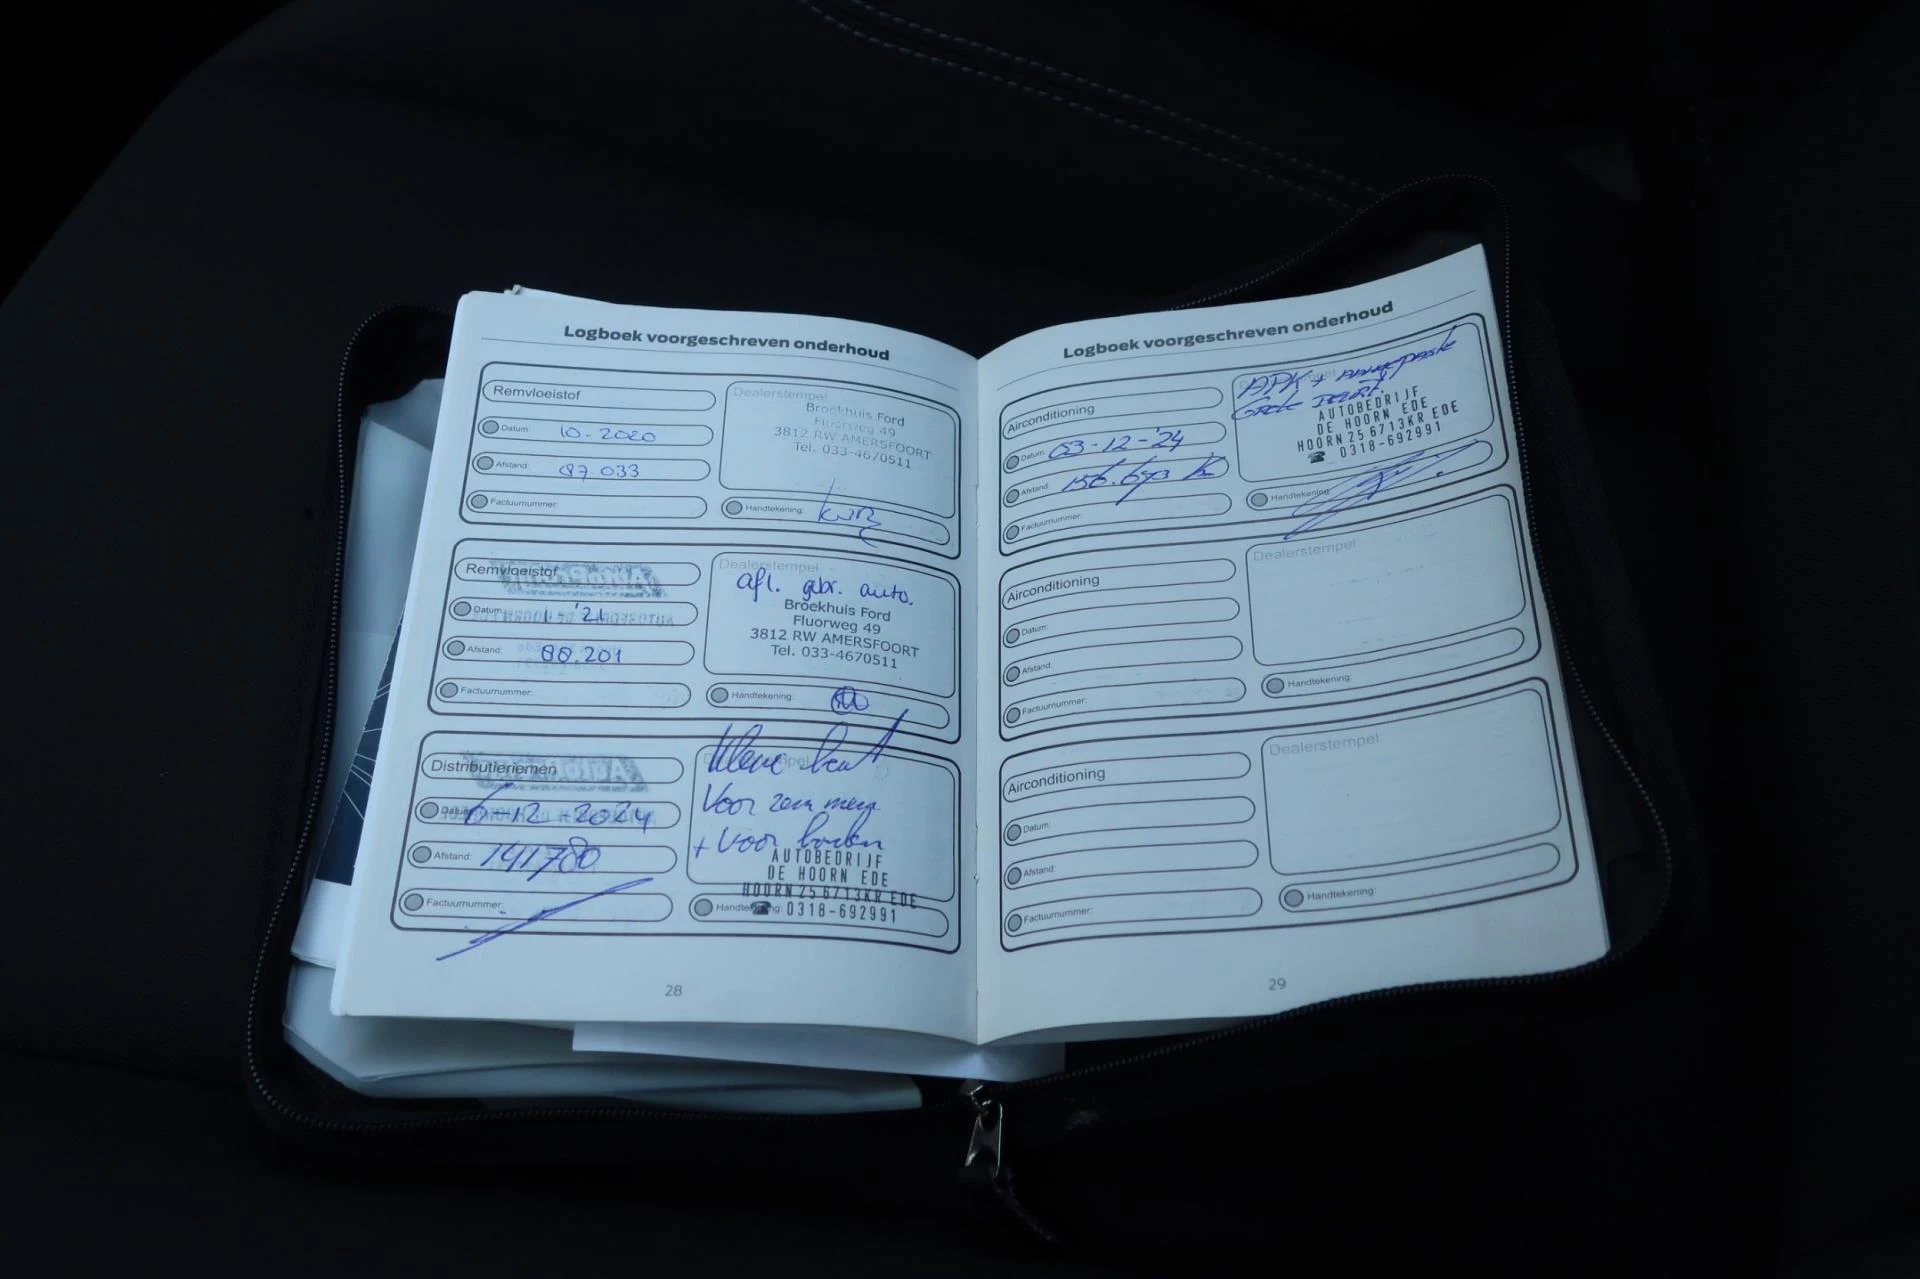 Logboek voorgeschreven onderhoud
Remvloeistof
Datum: 10-2020
Afstand: 87.033
Factuurnummer:
Dealerstempel
Broekhuis Ford
Fluorweg 49
3812 RW AMERSFOORT
Tel. 033-4670511
Handtekening:
Remvloeistof
Datum: 1 '21
Afstand: 88.201
Factuurnummer:
Dealerstempel
afl. gebr. auto.
Broekhuis Ford
Fluorweg 49
3812 RW AMERSFOORT
Tel. 033-4670511
Handtekening:
Distributieriemen
Datum: 6-12-2024
Afstand: 141780
Factuurnummer:
Kleine beurt
Voor
+ Voor
AUTOBEDRIJF
DE HOORN EDE
HOORN 25 6713KR EDE
☎ 0318-692991
Handtekening:
28
Logboek voorgeschreven onderhoud
Airconditioning
Datum: 03-12-'24
Afstand: 156.693 km
Factuurnummer:
APK +
Grote beurt.
AUTOBEDRIJF
DE HOORN EDE
HOORN 25 6713KR EDE
☎ 0318-692991
Handtekening:
Airconditioning
Datum:
Afstand:
Factuurnummer:
Dealerstempel
Handtekening:
Airconditioning
Datum:
Afstand:
Factuurnummer:
Dealerstempel
Handtekening:
29